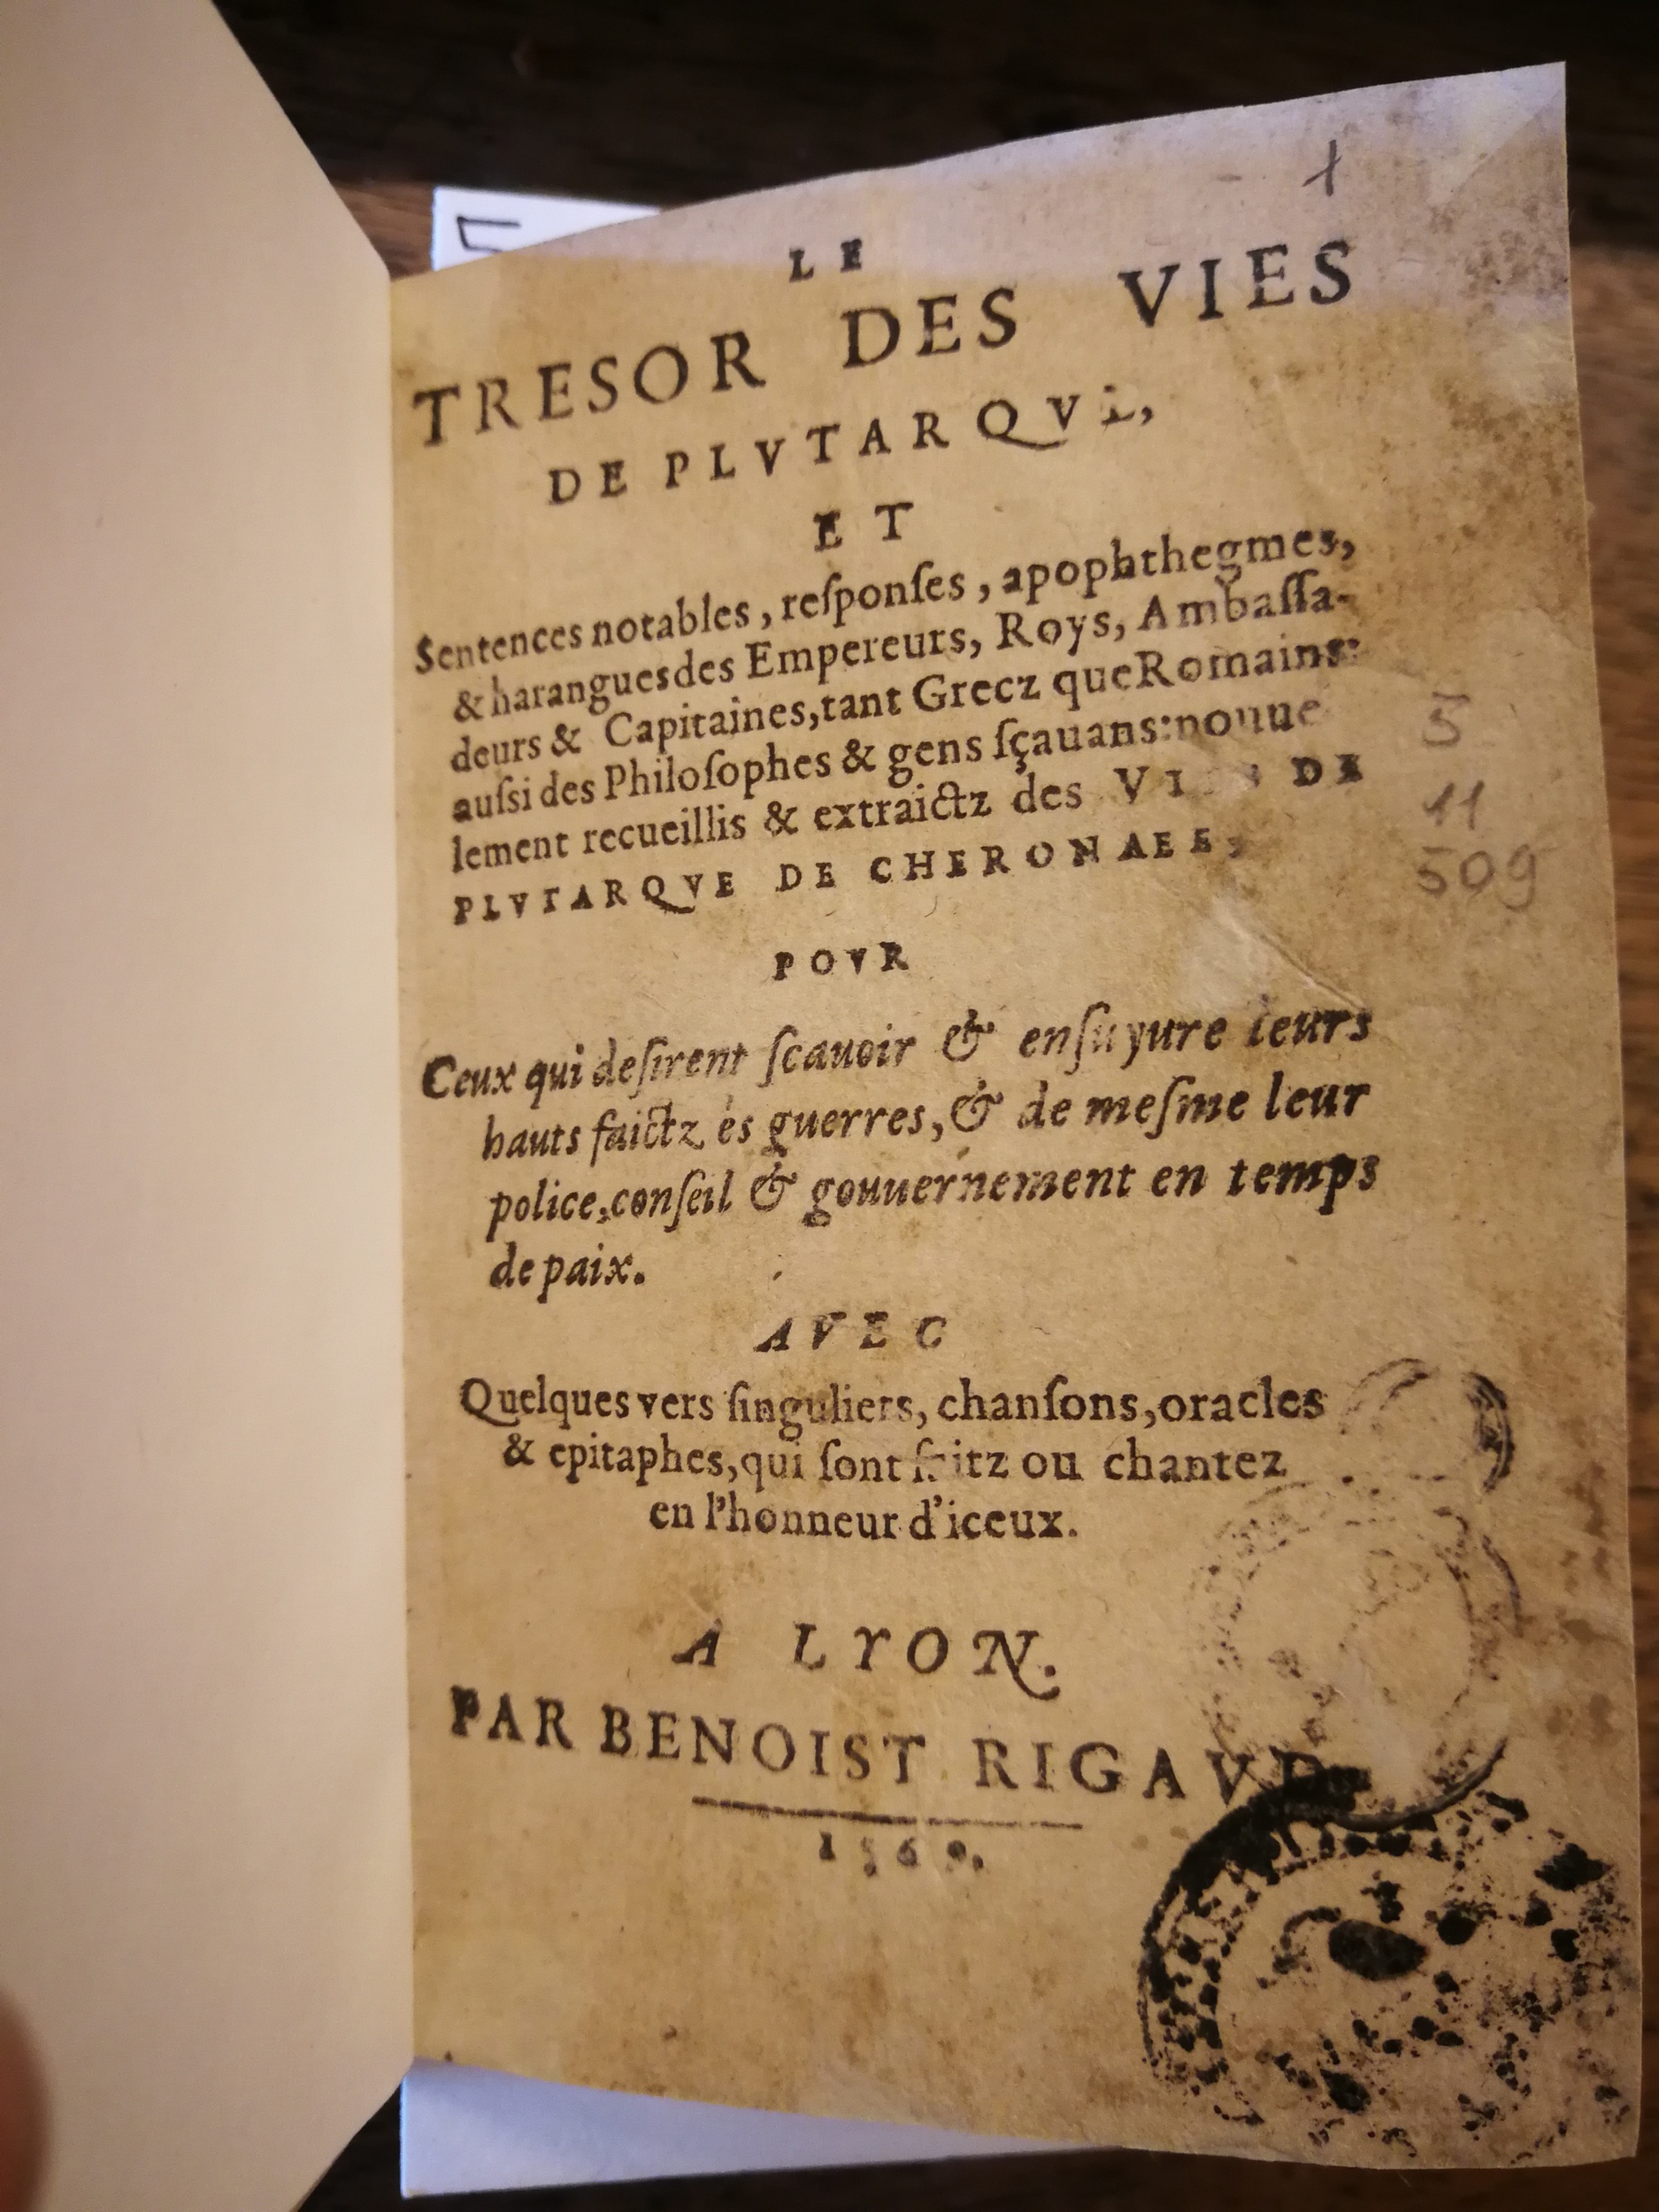 1
LE
TRESOR DES VIES
DE PLVTARQVE,
ET
Sentences notables, reſponſes, apophthegmes,
& harangues des Empereurs, Roys, Ambaſſa-
deurs & Capitaines, tant Grecz que Romains:
auſsi des Philoſophes & gens ſçauans: nouue
lement recueillis & extraictz des VIES DE
PLVTARQVE DE CHERONAEE,
POVR
Ceux qui deſirent ſcauoir & enſuyure leurs
hauts faictz és guerres, & de meſme leur
police, conſeil & gouuernement en temps
de paix.
AVEC
Quelques vers ſinguliers, chanſons, oracles
& epitaphes, qui ſont faitz ou chantez
en l'honneur d'iceux.
A LYON.
PAR BENOIST RIGAVD
5
11
509